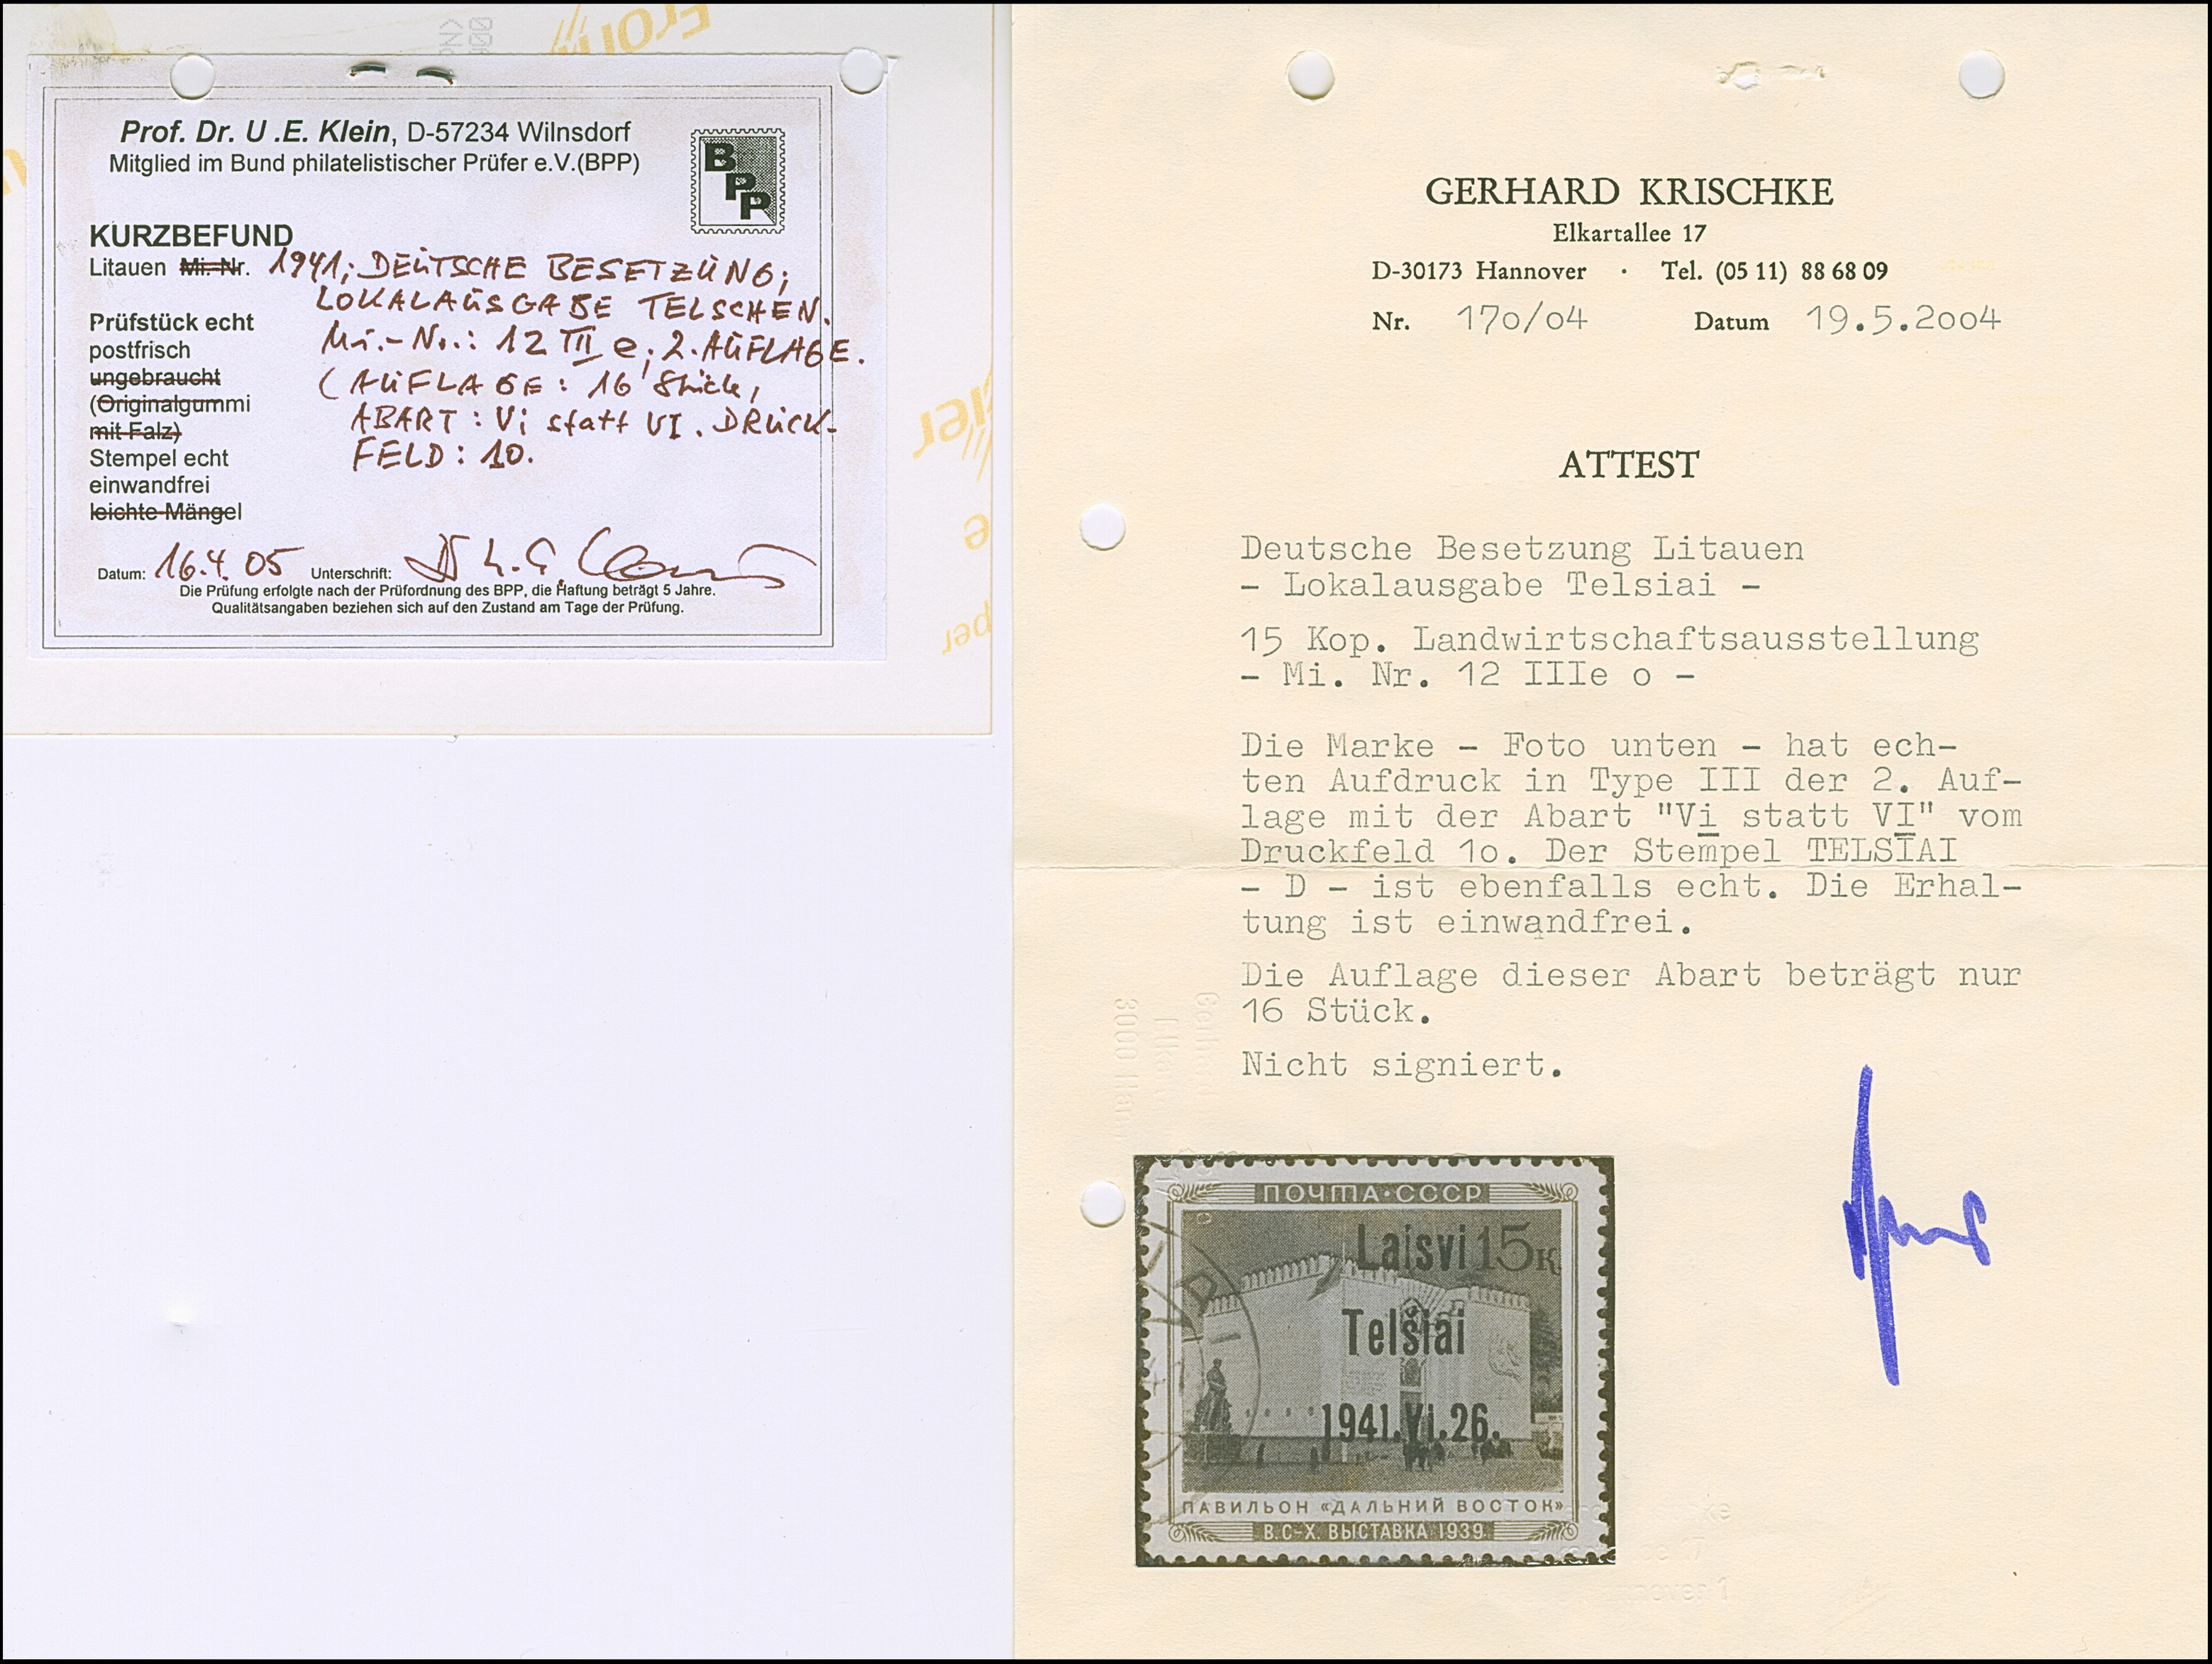 Prof. Dr. U .E. Klein, D-57234 Wilnsdorf
Mitglied im Bund philatelistischer Prüfer e.V.(BPP)
BPP
KURZBEFUND
Litauen Mi.-Nr. 1941; DEUTSCHE BESETZUNG;
LOKALAUSGABE TELSCHEN.
Prüfstück echt
Mi.-Nr.: 12 III e; 2. AUFLAGE.
postfrisch
ungebraucht
(AUFLAGE: 16 Stück,
(Originalgummi
mit Falz)
ABART: Vi statt VI. DRUCK-
FELD: 10.
Stempel echt
einwandfrei
leichte Mängel
Datum: 16.4.05 Unterschrift:
Die Prüfung erfolgte nach der Prüfordnung des BPP, die Haftung beträgt 5 Jahre.
Qualitätsangaben beziehen sich auf den Zustand am Tage der Prüfung.
GERHARD KRISCHKE
Elkartallee 17
D-30173 Hannover · Tel. (05 11) 88 68 09
Nr. 170/04 Datum 19.5.2004
ATTEST
Deutsche Besetzung Litauen
- Lokalausgabe Telsiai -
15 Kop. Landwirtschaftsausstellung
- Mi. Nr. 12 IIIe o -
Die Marke - Foto unten - hat ech-
ten Aufdruck in Type III der 2. Auf-
lage mit der Abart "Vi statt VI" vom
Druckfeld 1o. Der Stempel TELSIAI
- D - ist ebenfalls echt. Die Erhal-
tung ist einwandfrei.
Die Auflage dieser Abart beträgt nur
16 Stück.
Nicht signiert.
ПОЧТА·СССР
Laisvi 15к
Telšiai
1941.Vi.26.
ПАВИЛЬОН «ДАЛЬНИЙ ВОСТОК»
В.С-Х. ВЫСТАВКА 1939